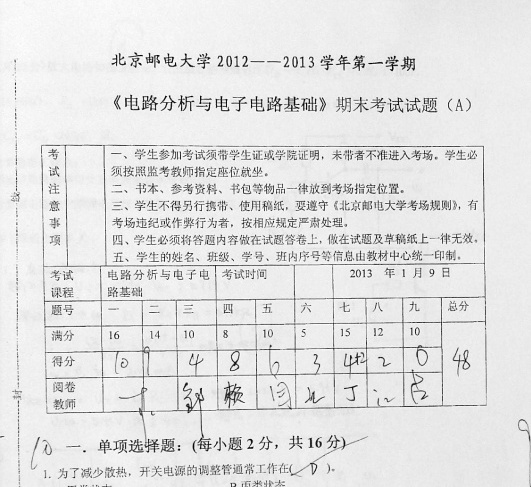 北京邮电大学 2012——2013 学年第一学期
《电路分析与电子电路基础》期末考试试题（A）
考试注意事项
一、学生参加考试须带学生证或学院证明，未带者不准进入考场。学生必
须按照监考教师指定座位就坐。
二、书本、参考资料、书包等物品一律放到考场指定位置。
三、学生不得另行携带、使用稿纸，要遵守《北京邮电大学考场规则》，有
考场违纪或作弊行为者，按相应规定严肃处理。
四、学生必须将答题内容做在试题答卷上，做在试题及草稿纸上一律无效。
五、学生的姓名、班级、学号、班内序号等信息由教材中心统一印制。
考试课程 电路分析与电子电路基础 考试时间 2013 年 1 月 9 日
题号 一 二 三 四 五 六 七 八 九 总分
满分 16 14 10 8 10 5 15 12 10
得分 10 9 4 8 6 3 4+2 2 0 48
阅卷教师
10 一．单项选择题：(每小题 2 分，共 16 分)
1. 为了减少散热，开关电源的调整管通常工作在( D )。